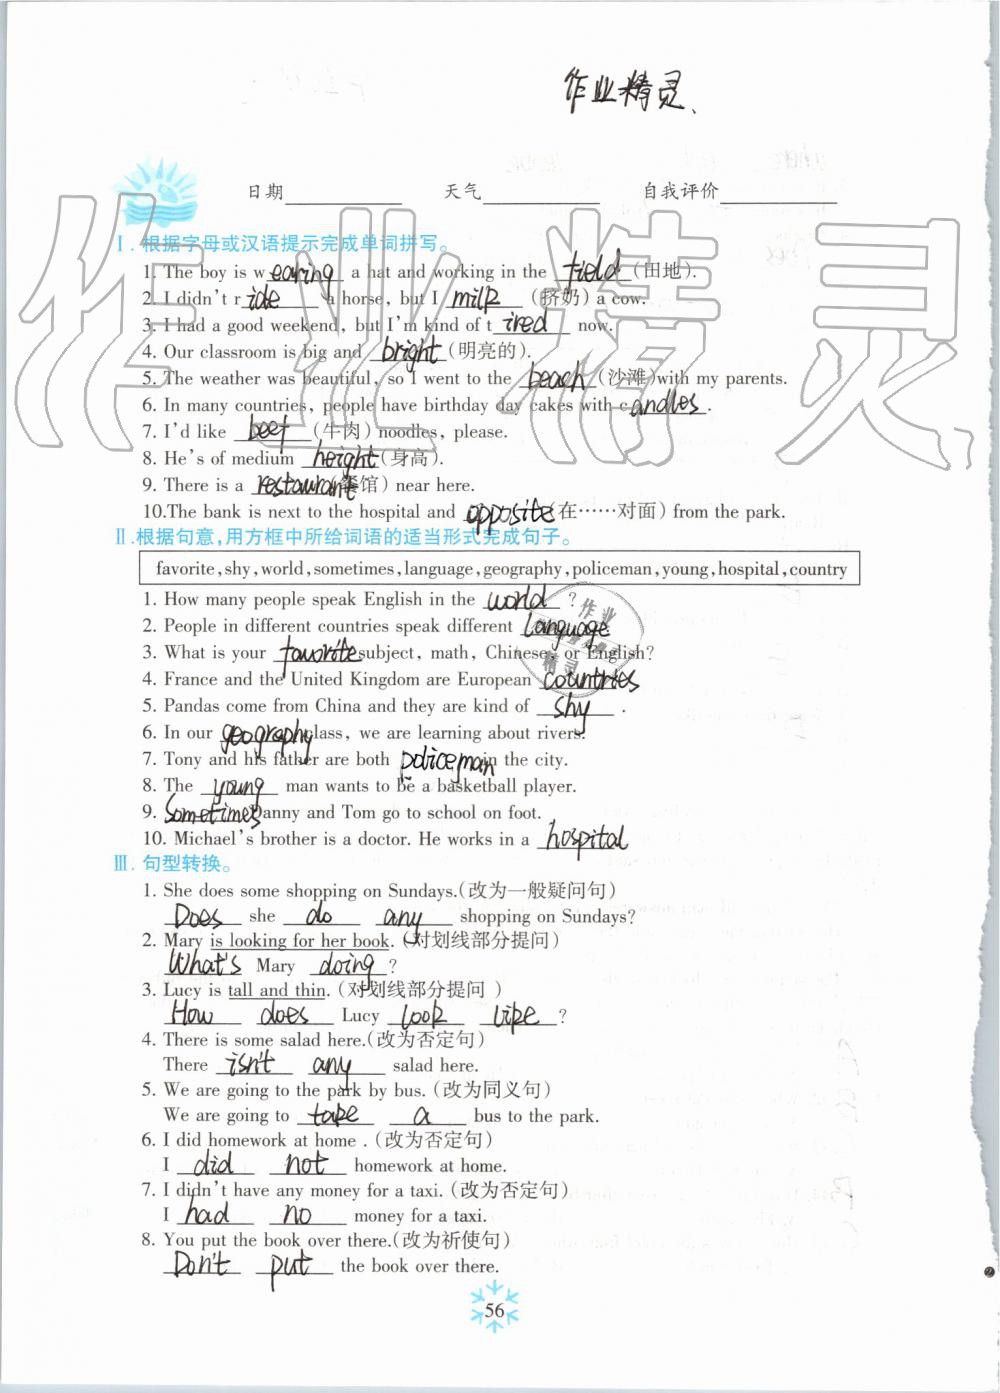 作业精灵
日期 天气 自我评价
作业精灵
Ⅰ.根据字母或汉语提示完成单词拼写。
1. The boy is wearing a hat and working in the field (田地).
2. I didn't ride a horse, but I milk (挤奶) a cow.
3. I had a good weekend, but I'm kind of tired now.
4. Our classroom is big and bright (明亮的).
5. The weather was beautiful, so I went to the beach (沙滩)with my parents.
6. In many countries, people have birthday day cakes with candles.
7. I'd like beef (牛肉) noodles, please.
8. He's of medium height (身高).
9. There is a restaurant (餐馆) near here.
10.The bank is next to the hospital and opposite (在……对面) from the park.
Ⅱ.根据句意,用方框中所给词语的适当形式完成句子。
favorite,shy,world,sometimes,language,geography,policeman,young,hospital,country
1. How many people speak English in the world ?
2. People in different countries speak different language
3. What is your favorite subject, math, Chinese, or English?
4. France and the United Kingdom are European countries
5. Pandas come from China and they are kind of shy .
6. In our geography class, we are learning about rivers.
7. Tony and his father are both policeman in the city.
8. The young man wants to be a basketball player.
9. Sometimes Danny and Tom go to school on foot.
10. Michael's brother is a doctor. He works in a hospital
Ⅲ. 句型转换。
1. She does some shopping on Sundays.(改为一般疑问句)
Does she do any shopping on Sundays?
2. Mary is looking for her book. (对划线部分提问)
What's Mary doing ?
3. Lucy is tall and thin. (对划线部分提问 )
How does Lucy look like ?
4. There is some salad here.(改为否定句)
There isn't any salad here.
5. We are going to the park by bus. (改为同义句)
We are going to take a bus to the park.
6. I did homework at home . (改为否定句)
I did not homework at home.
7. I didn't have any money for a taxi. (改为否定句)
I had no money for a taxi.
8. You put the book over there.(改为祈使句)
Don't put the book over there.
56